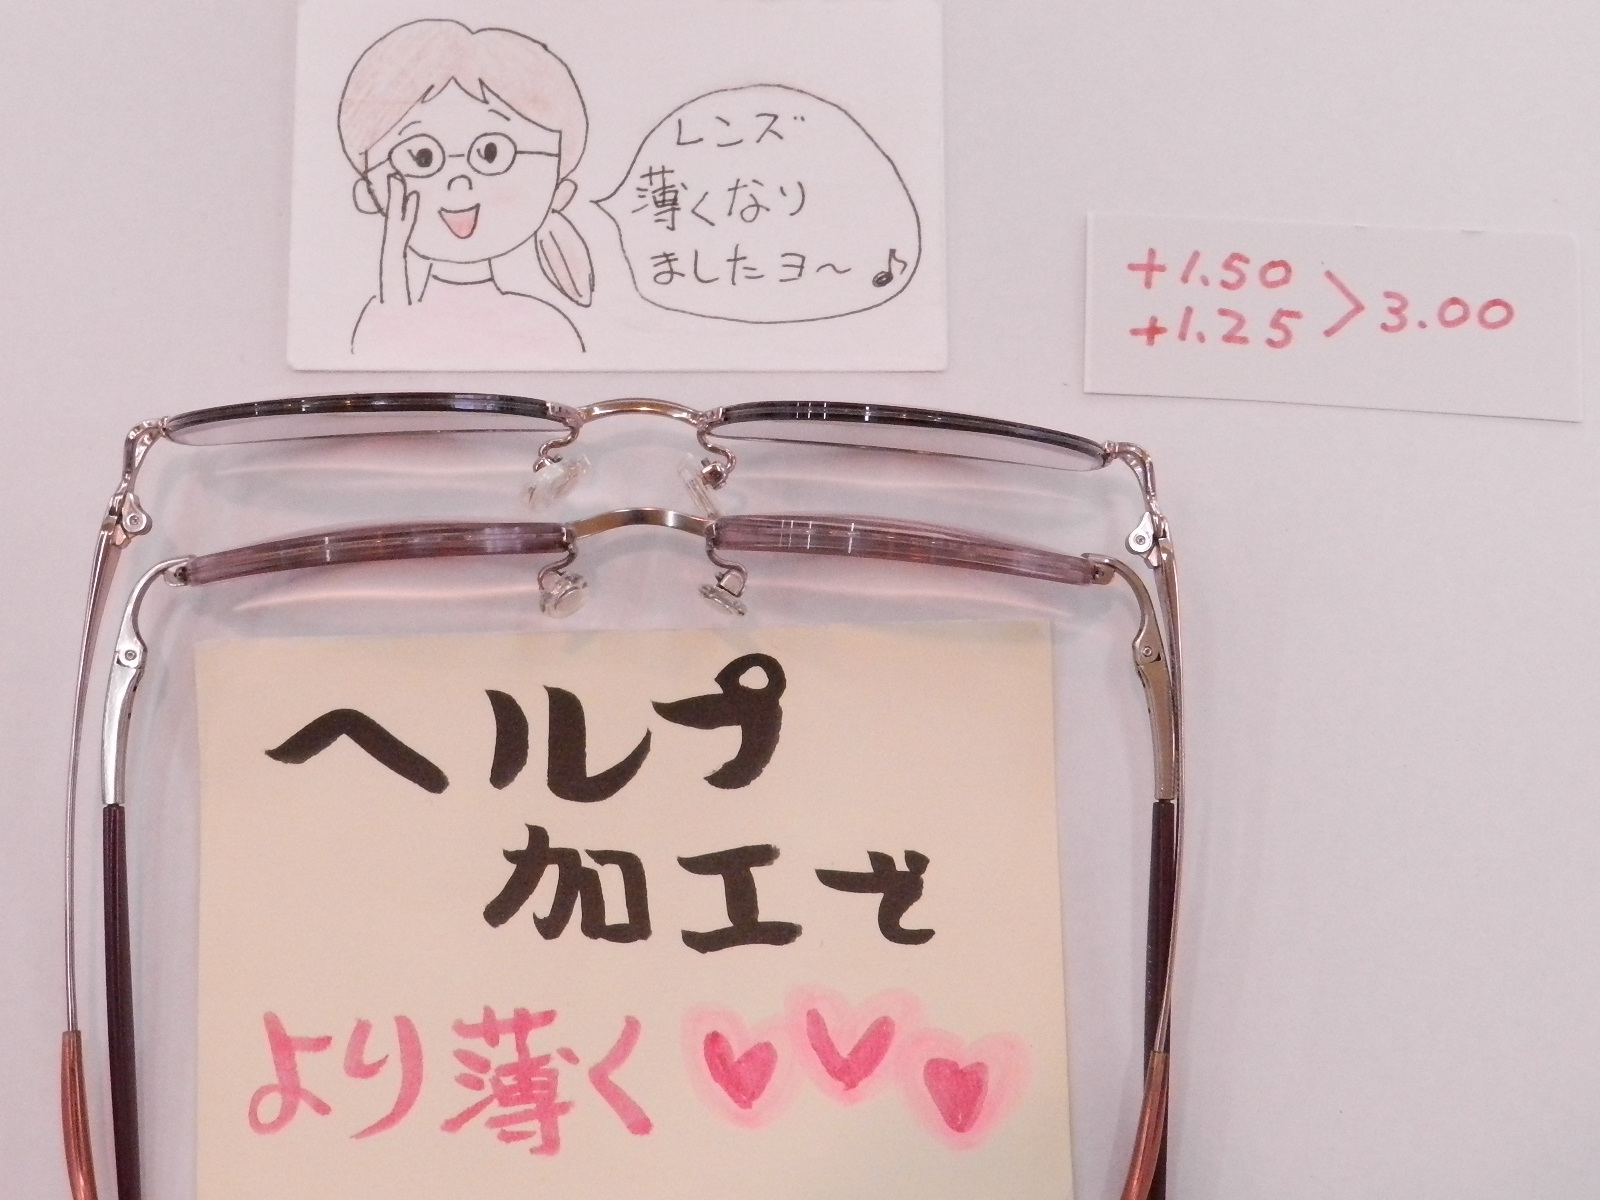 レンズ
薄くなり
ましたヨ～♪
+1.50
+1.25 > 3.00
ヘルプ
加工で
より薄く